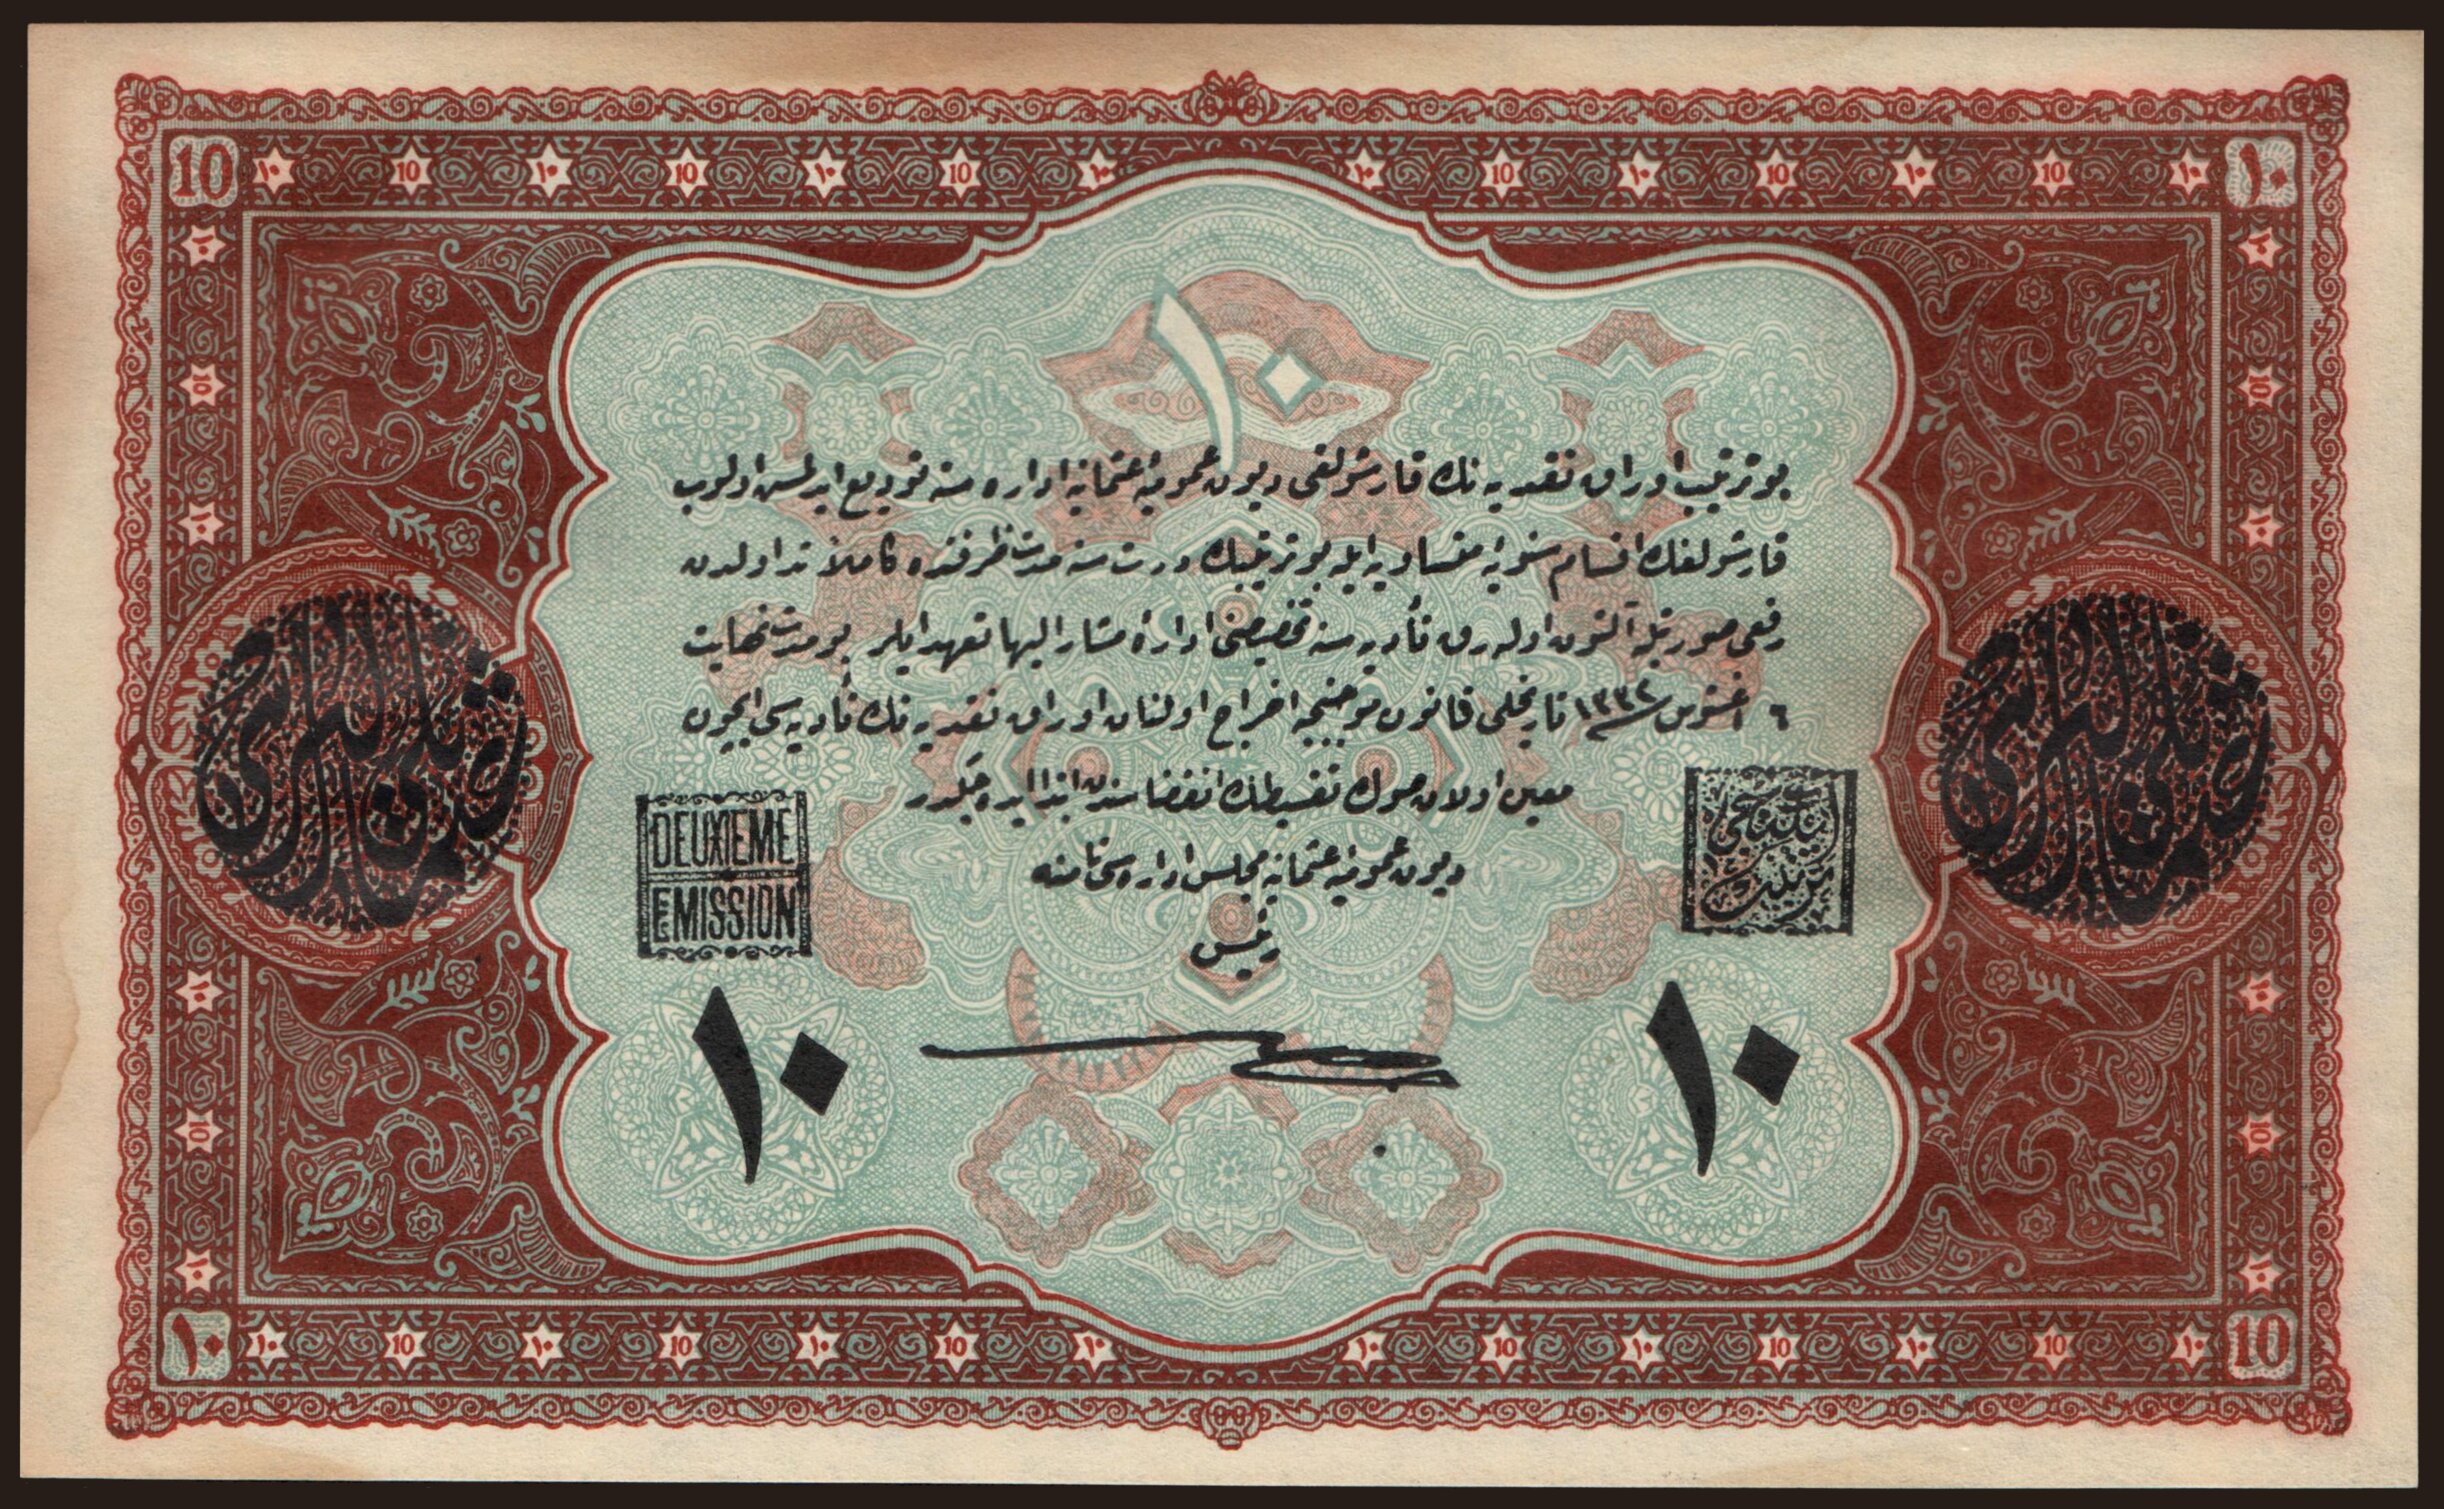 10 ١٠ 10 ١٠ 10 ١٠ 10 ١٠ ١٠ 10 ١٠ 10 ١٠ 10 ١٠ ١٠
١٠
بو ترتيب اوراق نقديه نك قارشولغى ديون عموميۀ عثمانيه اداره سنه توديع ايدلمش اولوب
قارشولغك اقسام سنويۀ متساويه ايله بو ترتيبك درت سنه مدت ظرفنده كاملاً تداولدن
رفعى صورتيله آلتون اوله رق تأديه سنه تخصيصنى ادارۀ مشار اليها تعهد ايلر بو مدت نهايت
٦ اغستوس ١٣٣٢ تاريخلى قانون موجبنجه اخراج اولنان اوراق نقديه نك تأديه سى ايچون
معين اولان صوك تقسيطك انقضاسندن ابتدا ايده جكدر
ديون عموميۀ عثمانيه مجلس اداره سى نامنه
رئيس
DEUXIEME
EMISSION
ايكنجى
ترتيب
١٠ ١٠
١٠ ١٠ 10 ١٠ 10 ١٠ 10 ١٠ ١٠ 10 ١٠ 10 ١٠ 10 ١٠ 10